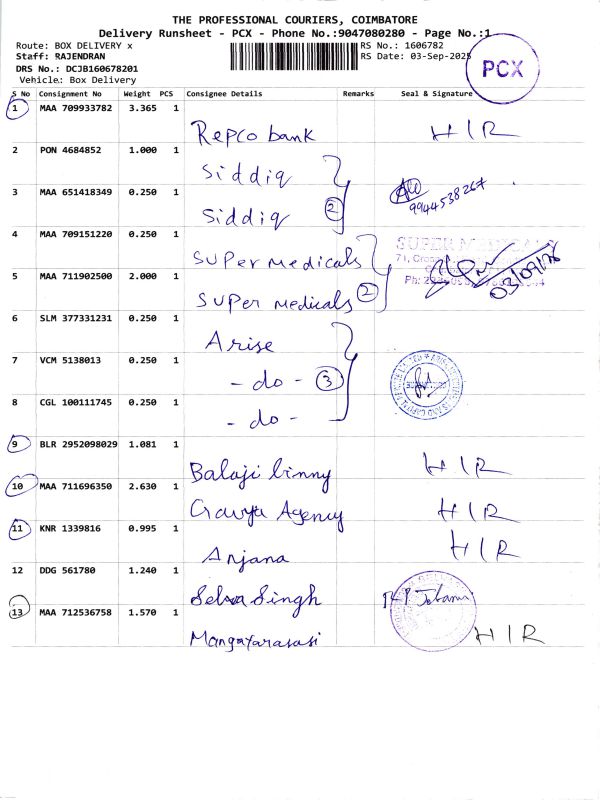 THE PROFESSIONAL COURIERS, COIMBATORE
Delivery Runsheet - PCX - Phone No.:9047080280 - Page No.:1
Route: BOX DELIVERY x
RS No.: 1606782
Staff: RAJENDRAN
RS Date: 03-Sep-2025
DRS No.: DCJB160678201
Vehicle: Box Delivery
PCX
S No Consignment No Weight PCS Consignee Details Remarks Seal & Signature
1 MAA 709933782 3.365 1
Repco bank H I R
2 PON 4684852 1.000 1
Siddiq
3 MAA 651418349 0.250 1
Siddiq 2
9944538267
4 MAA 709151220 0.250 1
SUPer medicals
SUPER MEDICALS
5 MAA 711902500 2.000 1
SUPer medicals 2
6 SLM 377331231 0.250 1
Arise
7 VCM 5138013 0.250 1
- do - 3
8 CGL 100111745 0.250 1
- do -
9 BLR 2952098029 1.081 1
Balaji binny H I R
10 MAA 711696350 2.630 1
Agency H I R
11 KNR 1339816 0.995 1
Anjana H I R
12 DDG 561780 1.240 1
Selva Singh
13 MAA 712536758 1.570 1
Mangayarasasi H I R